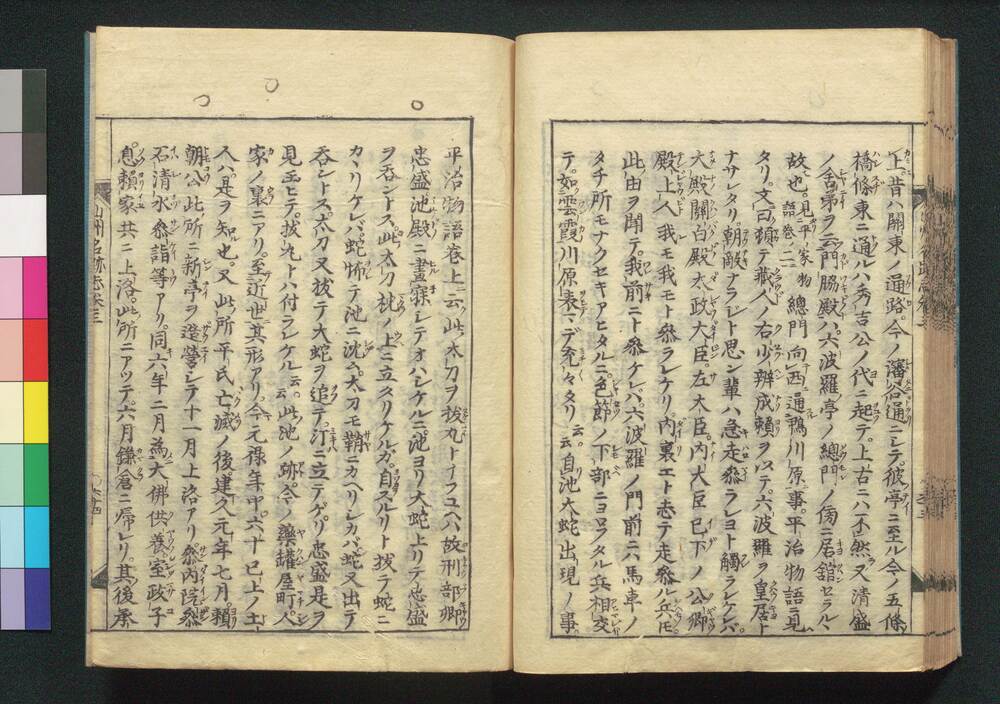 上昔ハ關東ノ通路今ノ瀋谷通ニシテ彼亭ニ至ル今ノ五條
橋條東ニ通ルハ秀吉公ノ代ニ起テ上古ニハ不然又清盛
ノ舍弟ヲ云門脇殿ハ六波羅亭ノ總門ノ傍ニ居舘セラル
故也見平家物語巻ノ二總門向西通鴨川原事平治物語ニ見
タリ文曰頼テ藏人ノ右少辨成頼ヲ以テ六波羅ヲ皇居ト
ナサレタリ朝敵ナラシト思ン輩ハ急走参ラレヨト觸ラレケレバ
大殿關白殿太政大臣左大臣内大臣已下ノ公卿
殿上人我モ我モト参ラレケリ内裏エト志テ走参ル兵圧
此由ヲ聞テ我前ニト参ケレバ六波羅ノ門前ニハ馬車ノ
タチ所モナクセキアヒタルニ色節ノ下部ニヨロヲタル兵相交
テ如雲霞川原表マデ充々タリ云云自池大蛇出現ノ事
平治物語卷上云此太刀ヲ拔丸トイフユヘハ故刑部卿
忠盛池殿ニ晝寐シテオハシケルニ池ヨリ大蛇上リテ忠盛
ヲ呑ントス此太刀枕ノ上ニ立タリケルガ自スルリト拔テ蛇ニ
カヽリケレバ蛇怖テ池ニ沈ム太刀モ鞘ニカヘリシカバ蛇又出テ
呑ントス太刀又拔テ大蛇ヲ追テ汀ニ立テゲリ忠盛是ヲ
見玉ヒテ拔丸トハ付ラレケル云云此池ノ跡今ノ藥罐屋町人
家ノ裏ニアリ至近世其形アリ今元禄年中六十已上ノ土
人ハ是ヲ知也又此所平氏亡滅ノ後建久元年七月頼
朝公此所ニ新亭ヲ造營シテ十一月上洛アリ然内院参
石清水参詣等アリ同六年二月為大佛供養室政子
息頼家共ニ上洛此所ニアツテ六月鎌倉ニ帰レリ其後承
山州名跡志卷三